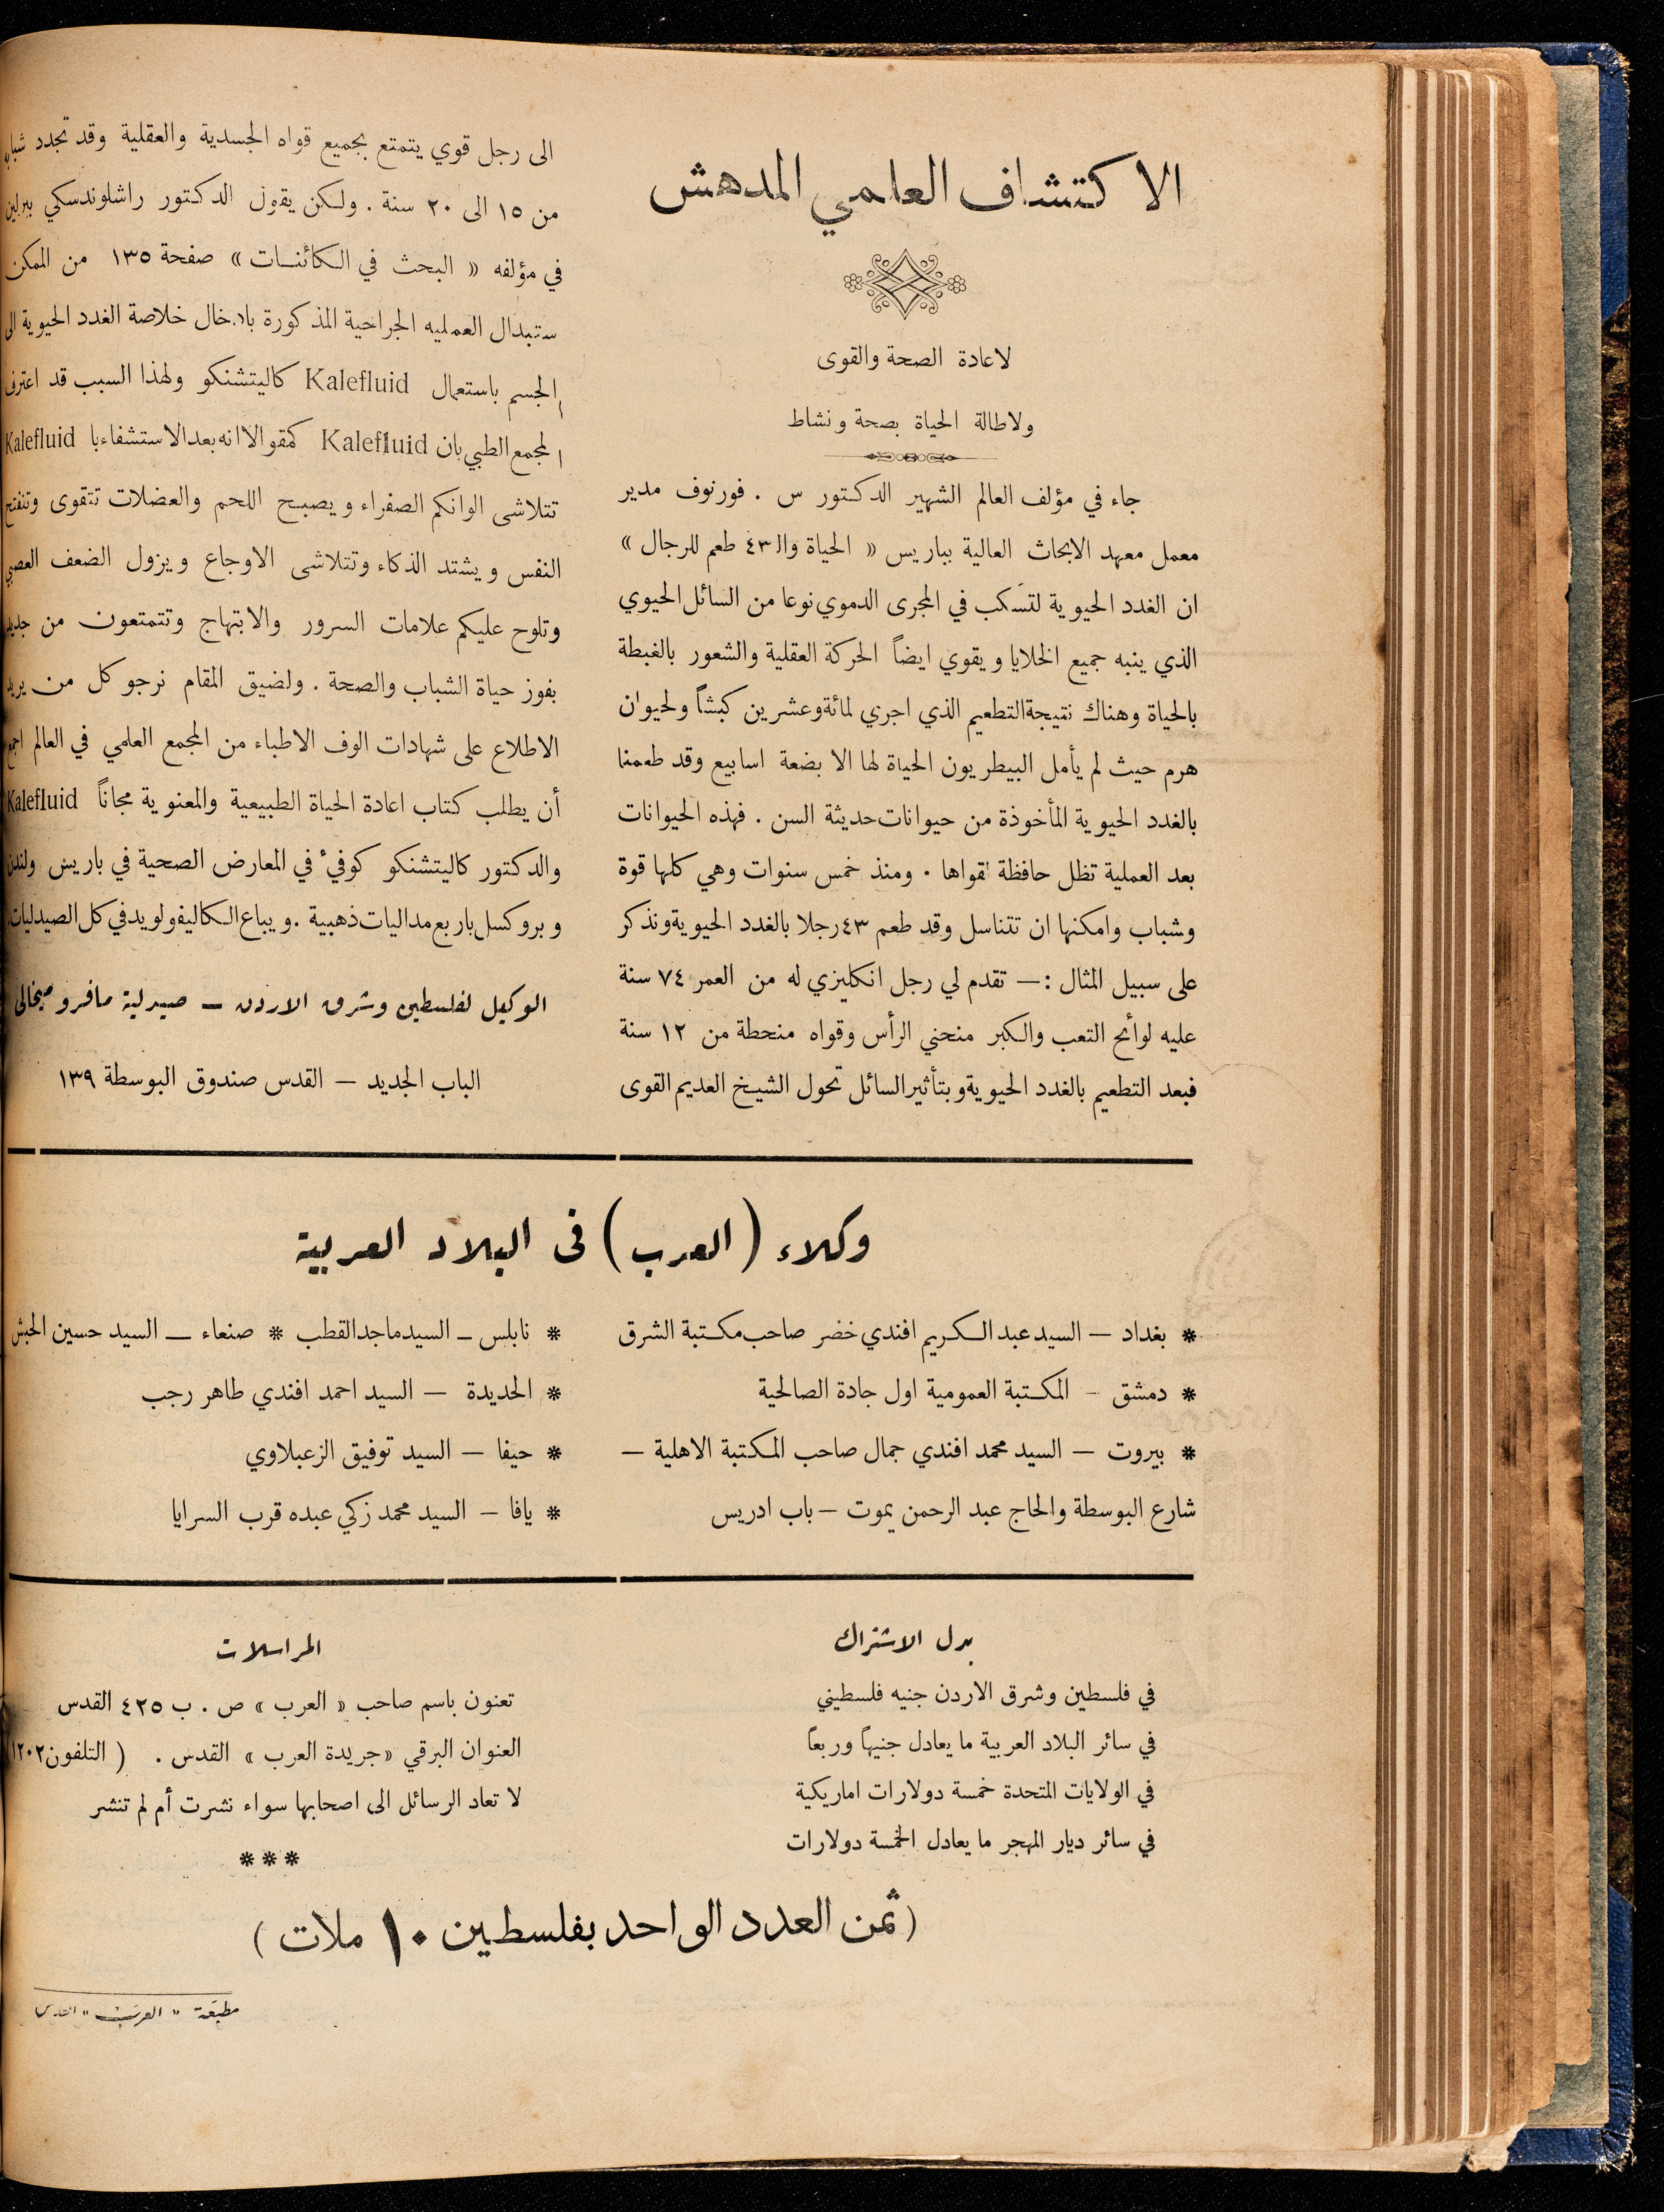 الاكتشاف العلمي المدهش
لاعادة الصحة والقوى
ولاطالة الحياة بصحة ونشاط
جاء في مؤلف العالم الشهير الدكتور س . فورنوف مدير
معمل معهد الابحاث العالية بباريس « الحياة وال٤٣ طعم للرجال »
ان الغدد الحيوية لتسكب في المجرى الدموي نوعا من السائل الحيوي
الذي ينبه جميع الخلايا ويقوي ايضاً الحركة العقلية والشعور بالغبطة
بالحياة وهناك نتيجة التطعيم الذي اجري لمائة وعشرين كبشاً ولحيوان
هرم حيث لم يأمل البيطريون الحياة لها الا بضعة اسابيع وقد طعمنا
بالغدد الحيوية المأخوذة من حيوانات حديثة السن . فهذه الحيوانات
بعد العملية تظل حافظة لقواها . ومنذ خمس سنوات وهي كلها قوة
وشباب وامكنها ان تتناسل وقد طعم ٤٣ رجلا بالغدد الحيوية ونذكر
على سبيل المثال : — تقدم لي رجل انكليزي له من العمر ٧٤ سنة
عليه لوأئح التعب والكبر منحني الرأس وقواه منحطة من ١٢ سنة
فبعد التطعيم بالغدد الحيوية وبتأثير السائل تحول الشيخ العديم القوى
الى رجل قوي يتمتع بجميع قواه الجسدية والعقلية وقد تجدد شبابه
من ١٥ الى ٢٠ سنة . ولكن يقول الدكتور راشلوندسكي ببرلين
في مؤلفه « البحث في الكائنات » صفحة ١٣٥ من الممكن
ستبدال العمليه الجراحية المذكورة بادخال خلاصة الغدد الحيوية الى
الجسم باستعمال Kalefluid كاليتشنكو ولهذا السبب قد اعترف
المجمع الطبي بان Kalefluid كمقو الا انه بعد الاستشفاء با Kalefluid
تتلاشى الوانكم الصفراء ويصبح اللحم والعضلات تتقوى وتنفتح
النفس ويشتد الذكاء وتتلاشى الاوجاع ويزول الضعف العصبي
وتلوح عليكم علامات السرور والابتهاج وتتمتعون من جديد
بفوز حياة الشباب والصحة . ولضيق المقام نرجو كل من يريد
الاطلاع على شهادات الوف الاطباء من المجمع العلمي في العالم اجمع
أن يطلب كتاب اعادة الحياة الطبيعية والمعنوية مجاناً Kalefluid
والدكتور كاليتشنكو كوفيء في المعارض الصحية في باريس ولندن
وبروكسل باربع مداليات ذهبية . ويباع الكاليفولويد في كل الصيدليات.
الوكيل لفلسطين وشرق الاردن — صيدلية مافرو ميخالي
الباب الجديد — القدس صندوق البوسطة ١٣٩
وكلاء ( العرب ) فى البلاد العربية
* بغداد — السيد عبد الكريم افندي خضر صاحب مكتبة الشرق
* دمشق - المكتبة العمومية اول جادة الصالحية
* بيروت — السيد محمد افندي جمال صاحب المكتبة الاهلية —
شارع البوسطة والحاج عبد الرحمن يموت — باب ادريس
* نابلس — السيد ماجد القطب * صنعاء — السيد حسين الحبش
* الحديدة — السيد احمد افندي طاهر رجب
* حيفا — السيد توفيق الزعبلاوي
* يافا — السيد محمد زكي عبده قرب السرايا
بدل الاشتراك
في فلسطين وشرق الاردن جنيه فلسطيني
في سائر البلاد العربية ما يعادل جنيهاً وربعاً
في الولايات المتحدة خمسة دولارات اماريكية
في سائر ديار المهجر ما يعادل الخمسة دولارات
المراسلات
تعنون باسم صاحب « العرب » ص . ب ٤٢٥ القدس
العنوان البرقي «جريدة العرب» القدس . ( التلفون ١٢٠٢
لا تعاد الرسائل الى اصحابها سواء نشرت أم لم تنشر
***
( ثمن العدد الواحد بفلسطين ١٠ ملات )
مطبعة "العرب" القدس